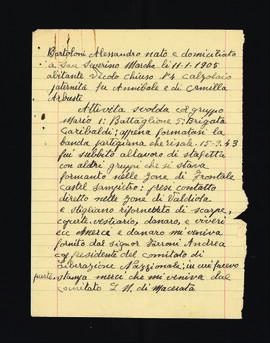 Bartoloni Alessandro nato e domiciliato
a San Severino Marche li 11-1-1905
abitante Vicolo chiuso N°4 calzolaio
paternità fu Annibale e di Camella
Arbuste
Attevita svolda col gruppo
Mario 1: Battaglione 5: Brigata
Garibaldi; appena formatosi la
banda partigiana che risale 15-9-43
fui subbito al lavoro di staffetta
con altri gruppi che si stava
formando nelle zone di Frontale
Castel Sanpietro: presi contatto
diretto nelle zone di Valdiola
e Stigliano rifornendoli di scarpe,
coperte, vestiario, danaro, e viveri
ecc merce e danaro mi veniva
fornito dal signor Farroni Andrea
presidente del comitato di
Liberazione Nazzionale; in cui facevo
parte, stanza merci che mi veniva dal
Comitato L. N. di Macerata